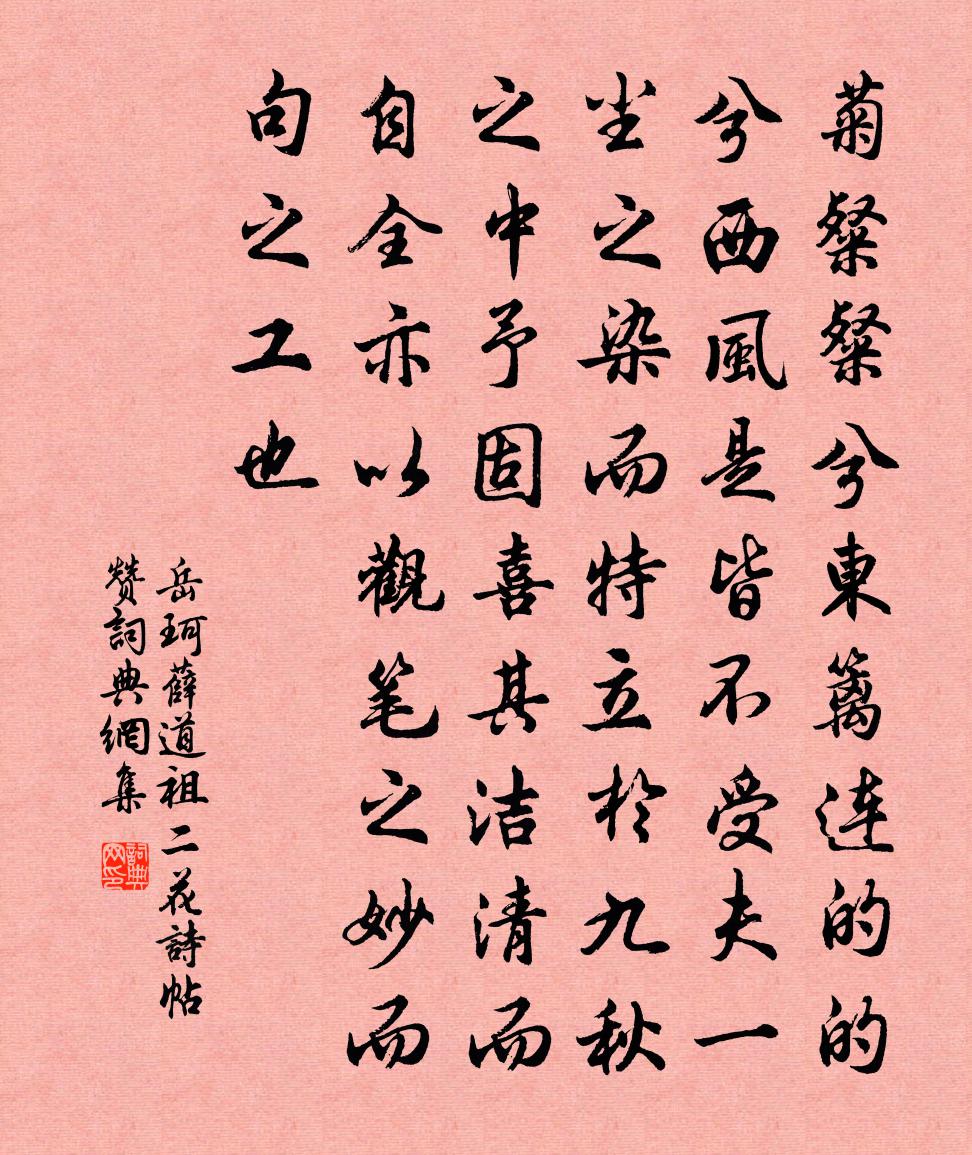 菊粲粲兮東籬連的的
兮西風是皆不受夫一
尘之染而特立於九秋
之中予固喜其洁清而
自全亦以觀笔之妙而
句之工也
岳珂薛道祖二花詩帖
赞詞典網集
詞典网印